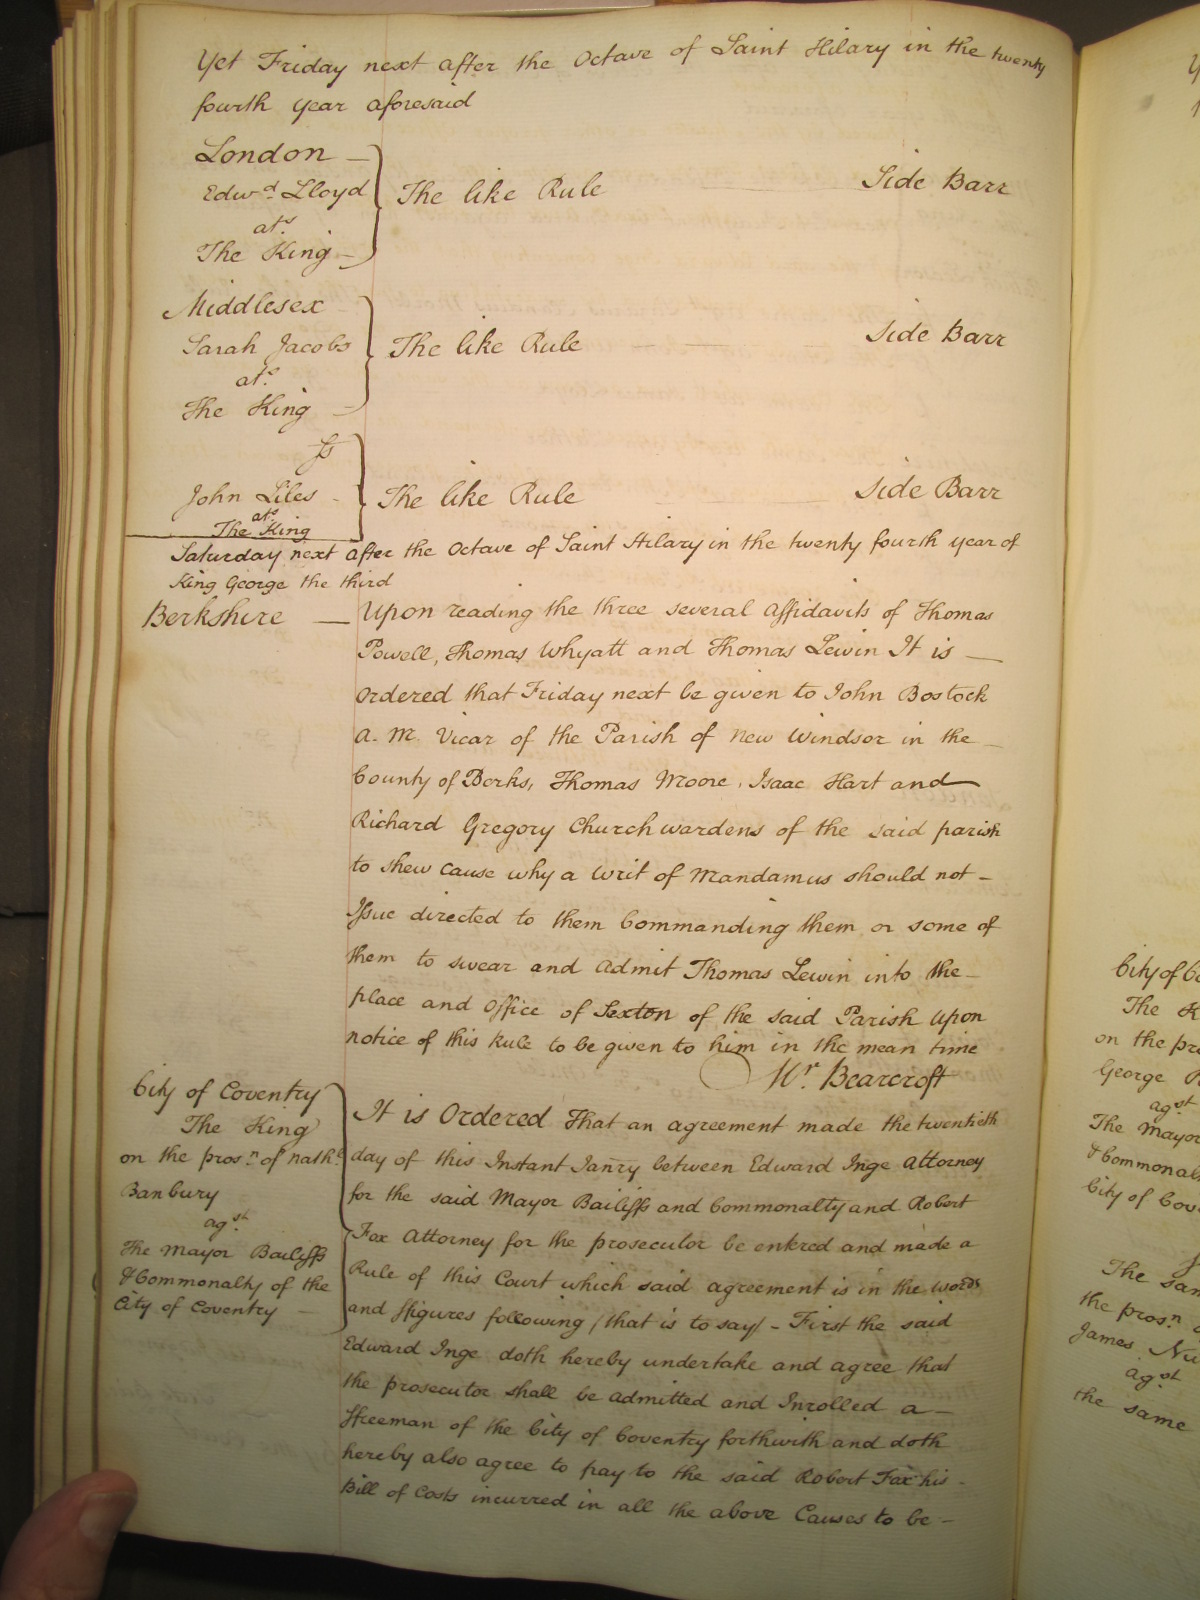 Yet Friday next after the Octave of Saint Hilary in the twenty
fourth year aforesaid
London —
Edwd Lloyd
ats
The King —
The like Rule
Side Barr
Middlesex
Sarah Jacobs
ats
The King —
The like Rule
Side Barr
Ss
John Liles -
ats
The King
The like Rule
Side Barr
Saturday next after the Octave of Saint Hilary in the twenty fourth year of
King George the third
Berkshire —
Upon reading the three several affidavits of Thomas
Powell, Thomas Whyatt and Thomas Lewin It is —
ordered that Friday next be given to John Bostock
A. M. Vicar of the Parish of New Windsor in the —
County of Berks, Thomas Moore, Isaac Hart and
Richard Gregory Churchwardens of the said parish
to shew cause why a Writ of Mandamus should not -
Issue directed to them Commanding them or some of
them to swear and admit Thomas Lewin into the -
place and Office of Sexton of the said Parish upon
notice of this Rule to be given to him in the mean time
Mr. Bearcroft
City of Coventry
The King
on the prosn of Nathl
Banbury
agst
The Mayor Bailiffs
& Commonalty of the
City of Coventry —
It is Ordered That an agreement made the twentieth
day of this Instant Janry between Edward Inge Attorney
for the said Mayor Bailiffs and Commonalty and Robert
Fox Attorney for the prosecutor be entred and made a
Rule of this Court which said agreement is in the words
and ffigures following (that is to say) - First the said
Edward Inge doth hereby undertake and agree that
the prosecutor shall be admitted and Inrolled a —
ffreeman of the City of Coventry forthwith and doth
hereby also agree to pay to the said Robert Fox his -
Bill of Costs incurred in all the above Causes to be -
City of Co
The K
on the pro
George
agst
The Mayor
& Commonal
City of Cov
The sam
the prosn
James Nu
agst
the same